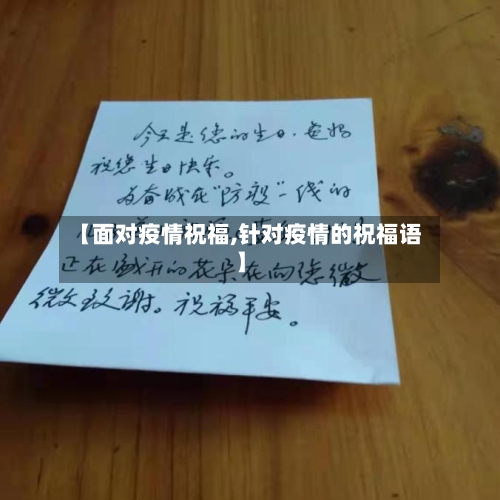 今天是您的生日,爸妈
祝您生日快乐。
为奋战在“防疫”一线的
【面对疫情祝福,针对疫情的祝福语
】
正在盛开的花朵在向您微笑
微致谢。祝福平安。